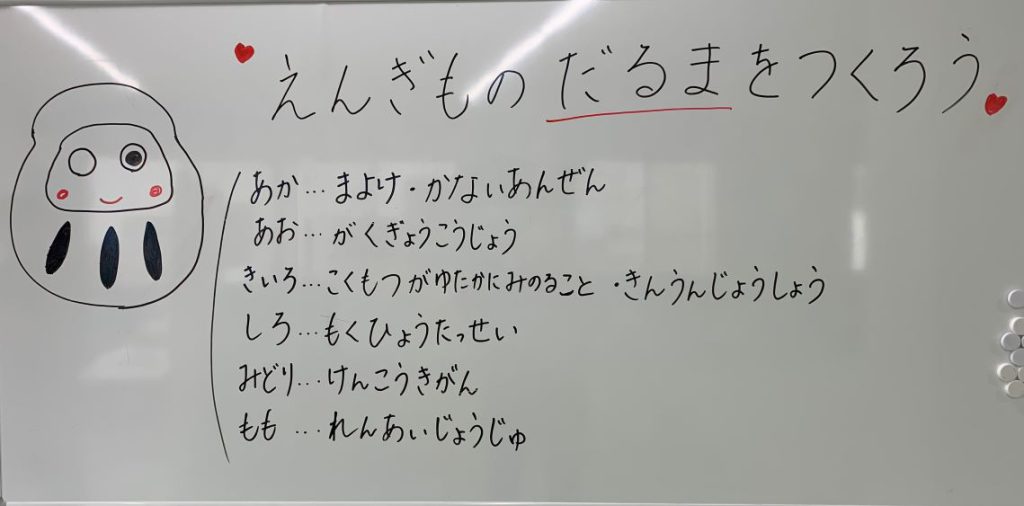 えんぎものだるまをつくろう
あか…まよけ・かないあんぜん
あお…がくぎょうこうじょう
きいろ…こくもつがゆたかにみのること・きんうんじょうしょう
しろ…もくひょうたっせい
みどり…けんこうきがん
もも…れんあいじょうじゅ